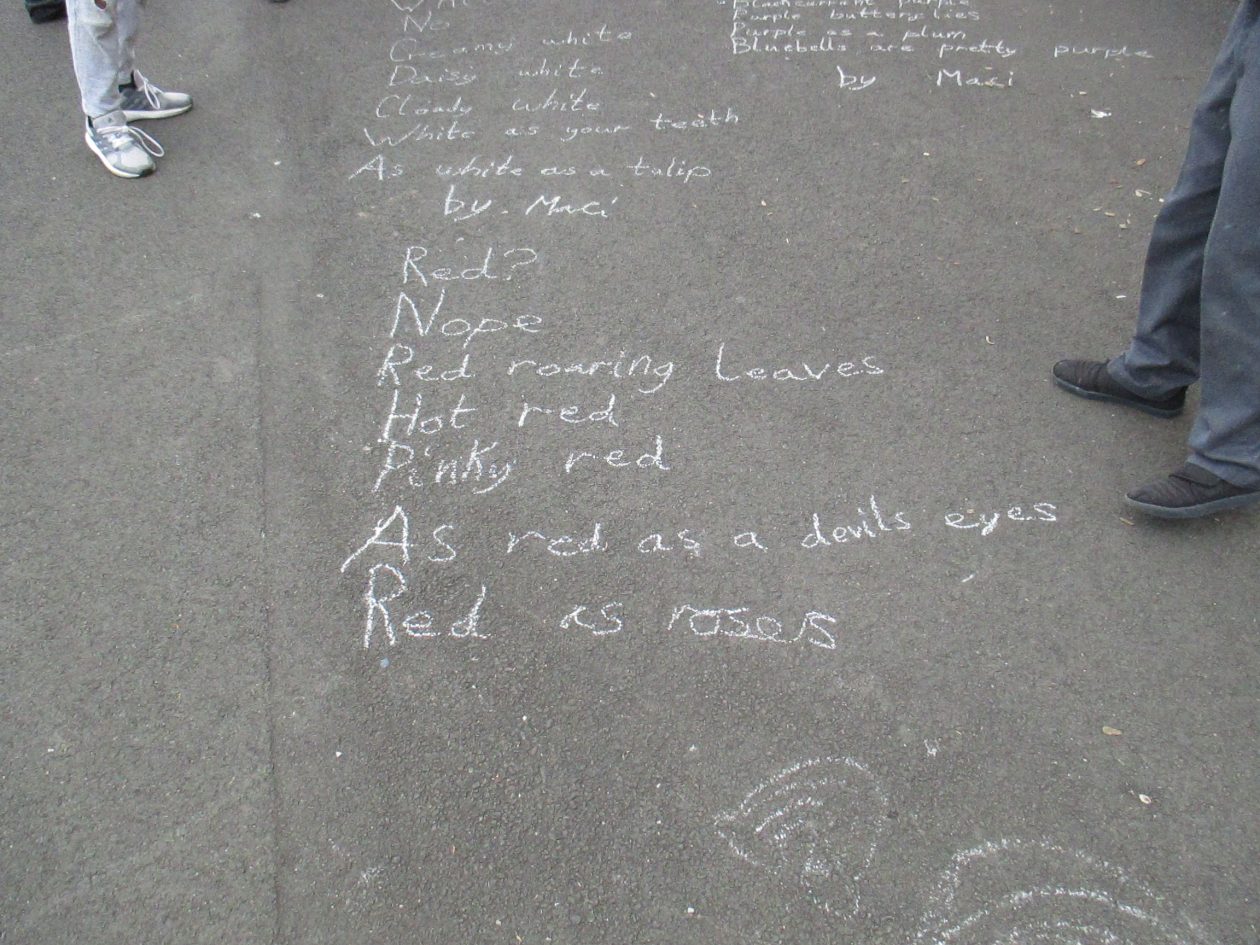 No
Creamy white
Daisy white
Cloudy white
White as your teeth
As white as a tulip
by. Maci
Blackcurrant purple
Purple butterflies
Purple as a plum
Bluebells are pretty purple
by Maci
Red?
Nope
Red roaring leaves
Hot red
Pinky red
As red as a devils eyes
Red as roses